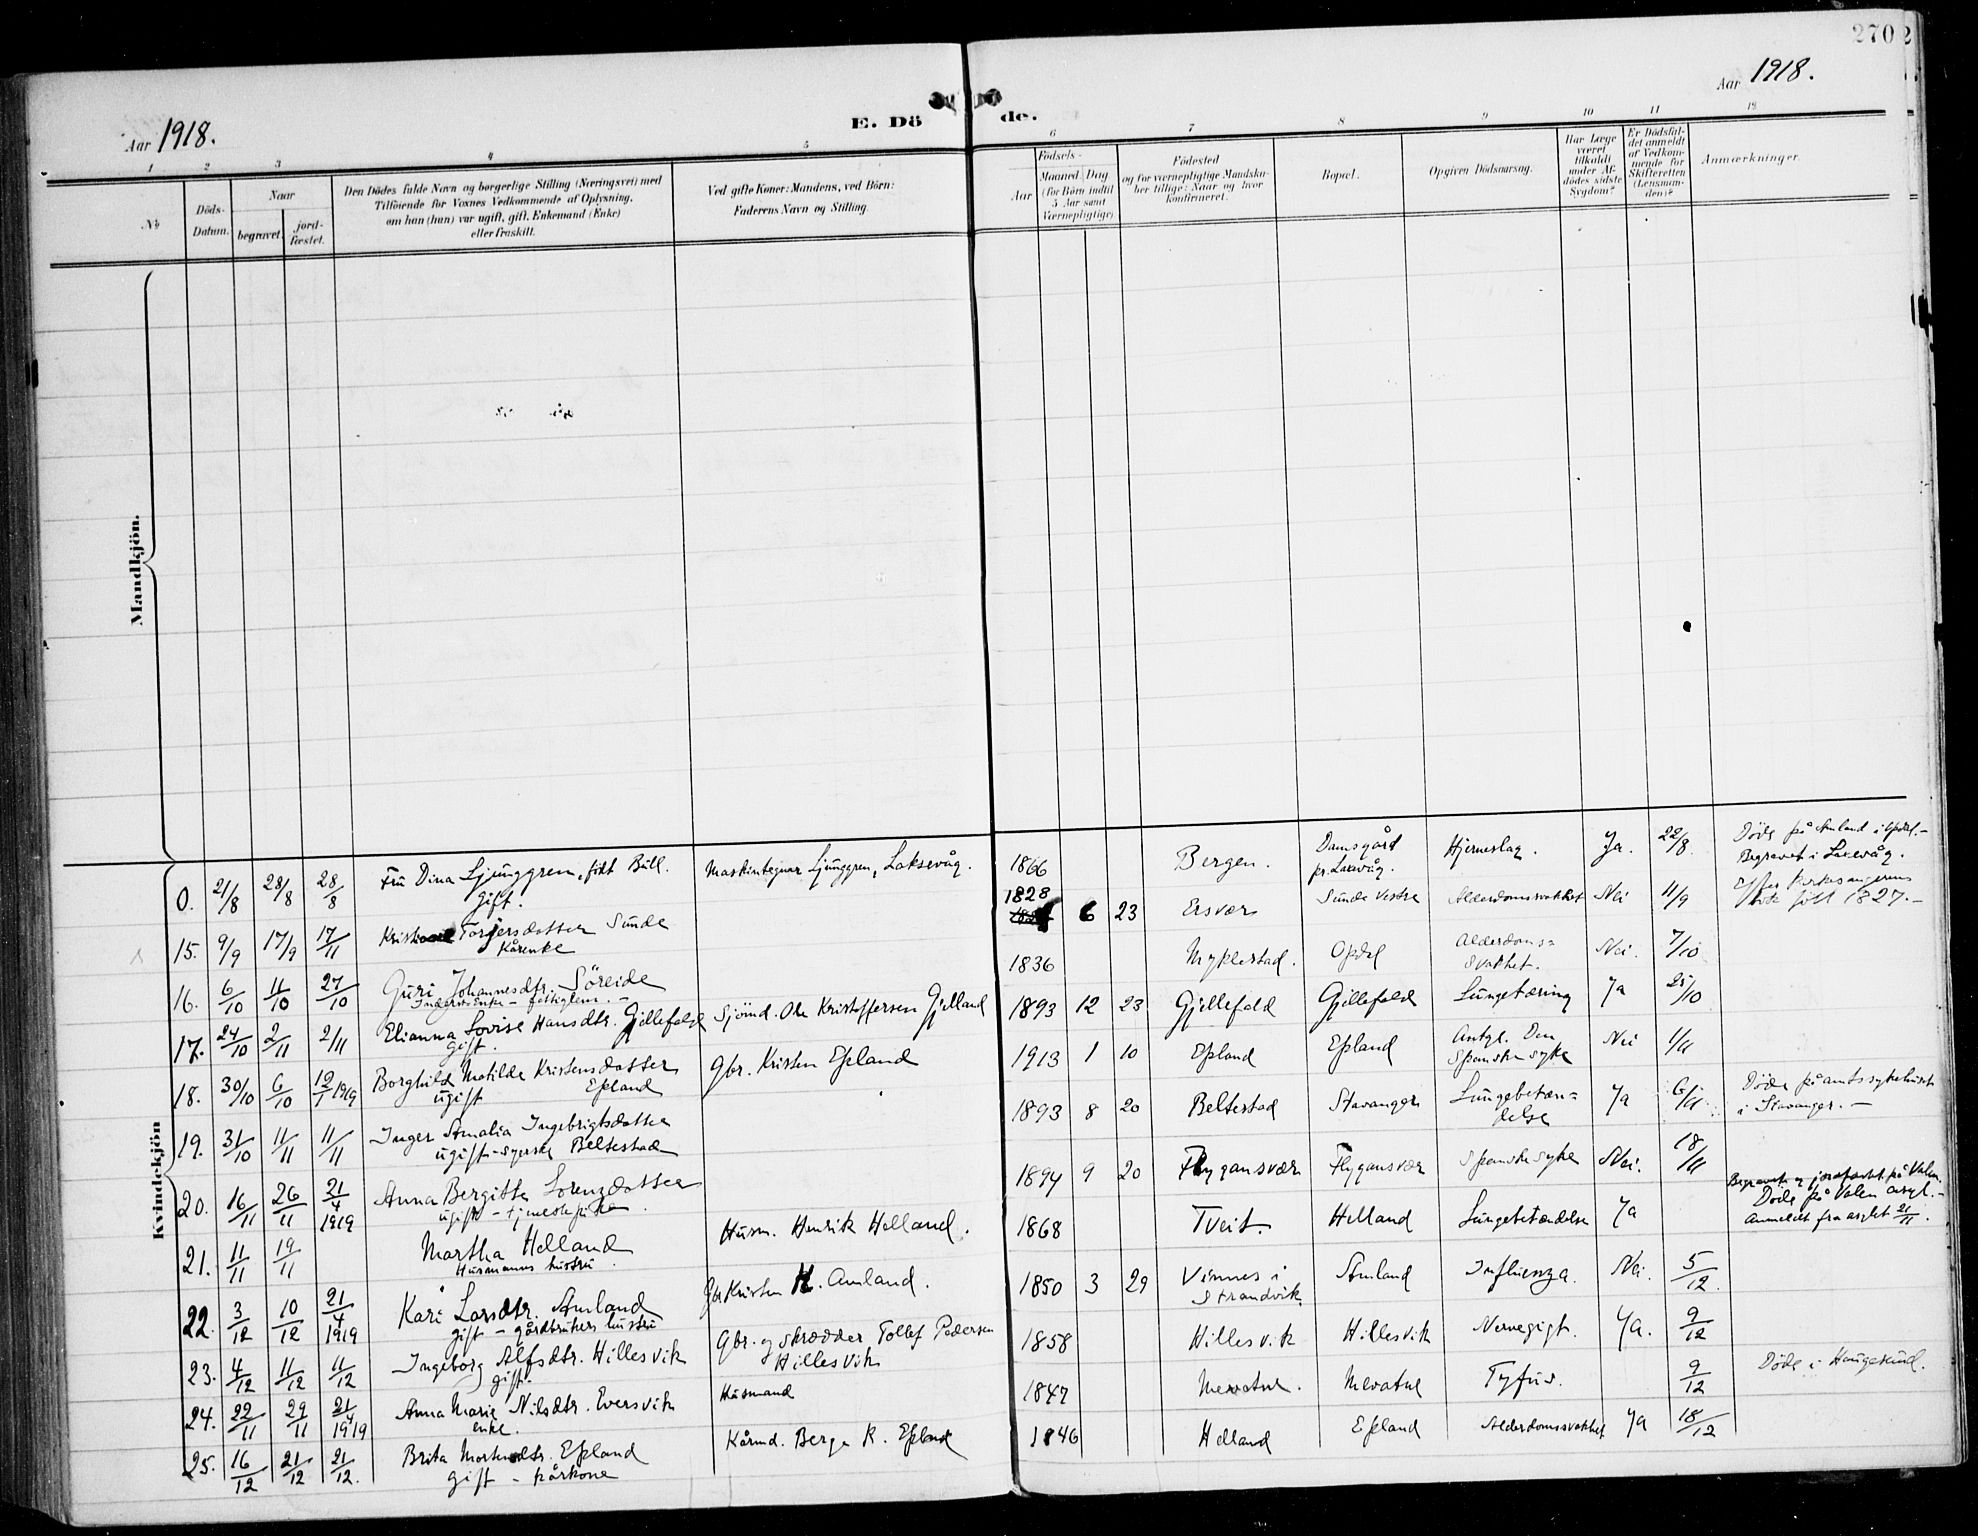 270
Aar 1918.
Aar 1918.
E. Dö de.
1 2 3 4 5 6 7 8 9 10 11 12
No
Döds-Datum.
Naar
begravet. jord-fæstet.
Den Dödes fulde Navn og borgerlige Stilling (Næringsvei) med
Tilföiende for Voxnes Vedkommende af Oplysning,
om han (hun) var ugift, gift, Enkemand (Enke)
eller fraskilt.
Ved gifte Koner: Mandens, ved Börn:
Faderens Navn og Stilling.
Födsels-
Aar Maaned. Dag
(for Börn indtil
5 Aar samt
Værnepligtige)
Födested
og for værnepligtige Mandskaber tillige: Naar og hvor
konfirmeret.
Bopæl.
Opgiven Dödsaarsag.
Har Læge
været
tilkaldt
under Af-
dödes sidste
Sygdom?
Er Dödsfal-
det anmeldt
af Vedkom-
mende for
Skifteretten
(Lensman-
den)?
Anmærkninger.
Mandkjön.
Kvindekjön
0. 21/8 28/8 28/8 Fru Dina Ljunggren, født Bull. Maskintegner Ljunggren, Laksevåg. 1866 Bergen. Damsgård Hjerneslag. Ja. 22/8 Døde på Amland i Opdal.-
gift. pr. Laksevåg. Begravet i Laksevåg.
15. 9/9 17/9 17/11 Torgersdatter Sunde 1828 6 23 Ersvær Sunde vestre Alderdomssvakhet Nei 11/9 Efter kirkesangerens
Kårenke bok født 1827.-
16. 6/10 11/10 27/10 Guri Johannesdtr. Söreide 1836 Myklestad. Opdal Alderdoms= Nei. 7/10
svakhet.
17. 24/10 2/11 2/11 Elianna Lovise Hansdtr. Gjillefald Sjömd. Ole Kristoffersen Gjelland 1893 12 23 Gjillefald Gjillefald Lungetæring Ja 25/10
gift.
18. 30/10 6/10 19/1 1919 Borghild Matilde Kristensdatter Gbr. Kristen Epland 1913 1 10 Epland Epland Antgl. Den Nei 1/11
ugift Epland Spanske syke
19. 31/10 11/11 11/11 Inger Amalia Ingebrigtsdatter 1893 8 20 Beltestad Stavanger Lungebetæn= Ja 6/11 Døde på amtssykehuset
ugift - syerske Beltestad delse i Stavanger. -
20. 16/11 26/11 21/4 1919 Anna Bergitte Lorenzdatter 1894 9 20 Flygansvær Flygansvær Spanske syke Nei. 18/11
ugift - tjenestepike.
21. 11/11 19/11 Martha Helland Husm. Henrik Helland. 1868 Tveit. Helland Lungebetændelse Ja Begravet og jordfæstet på Valen.
Husmanns hustru. Døde på Valen asyl.-
Anmeldt fra asylet 21/11.
22. 3/12 10/12 21/4 1919 Kari Larsdtr. Amland Gbr Kristen H. Amland. 1850 3 29 Vinnes i Amland Influenza. Nei. 5/12.
gift - gårdbrukers hustru Strandvik
23. 4/12 11/12 11/12 Ingeborg Alfsdtr. Hillesvik Gbr. og skrædder Tollef Pedersen 1858 Hillesvik Hillesvik Nervegigt. Ja. 9/12
gift. Hillesvik
24. 22/11 29/11 21/4 1919 Anna Marie Nilsdtr. Eversvik Husmand 1847 Mevatne. Mevatne Tyfus. 9/12 Døde i Haugesund.
enke.
25. 16/12 21/12 21/12. Brita Mortensdtr. Epland Kårmd. Berge K. Epland 1846 Helland Epland Alderdomssvakhet Ja 18/12
gift - kårkone